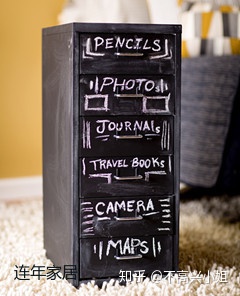 PENCILS
PHOTO
JOURNALS
TRAVEL BOOKS
CAMERA
MAPS
连年家居
知乎 @不高兴小姐